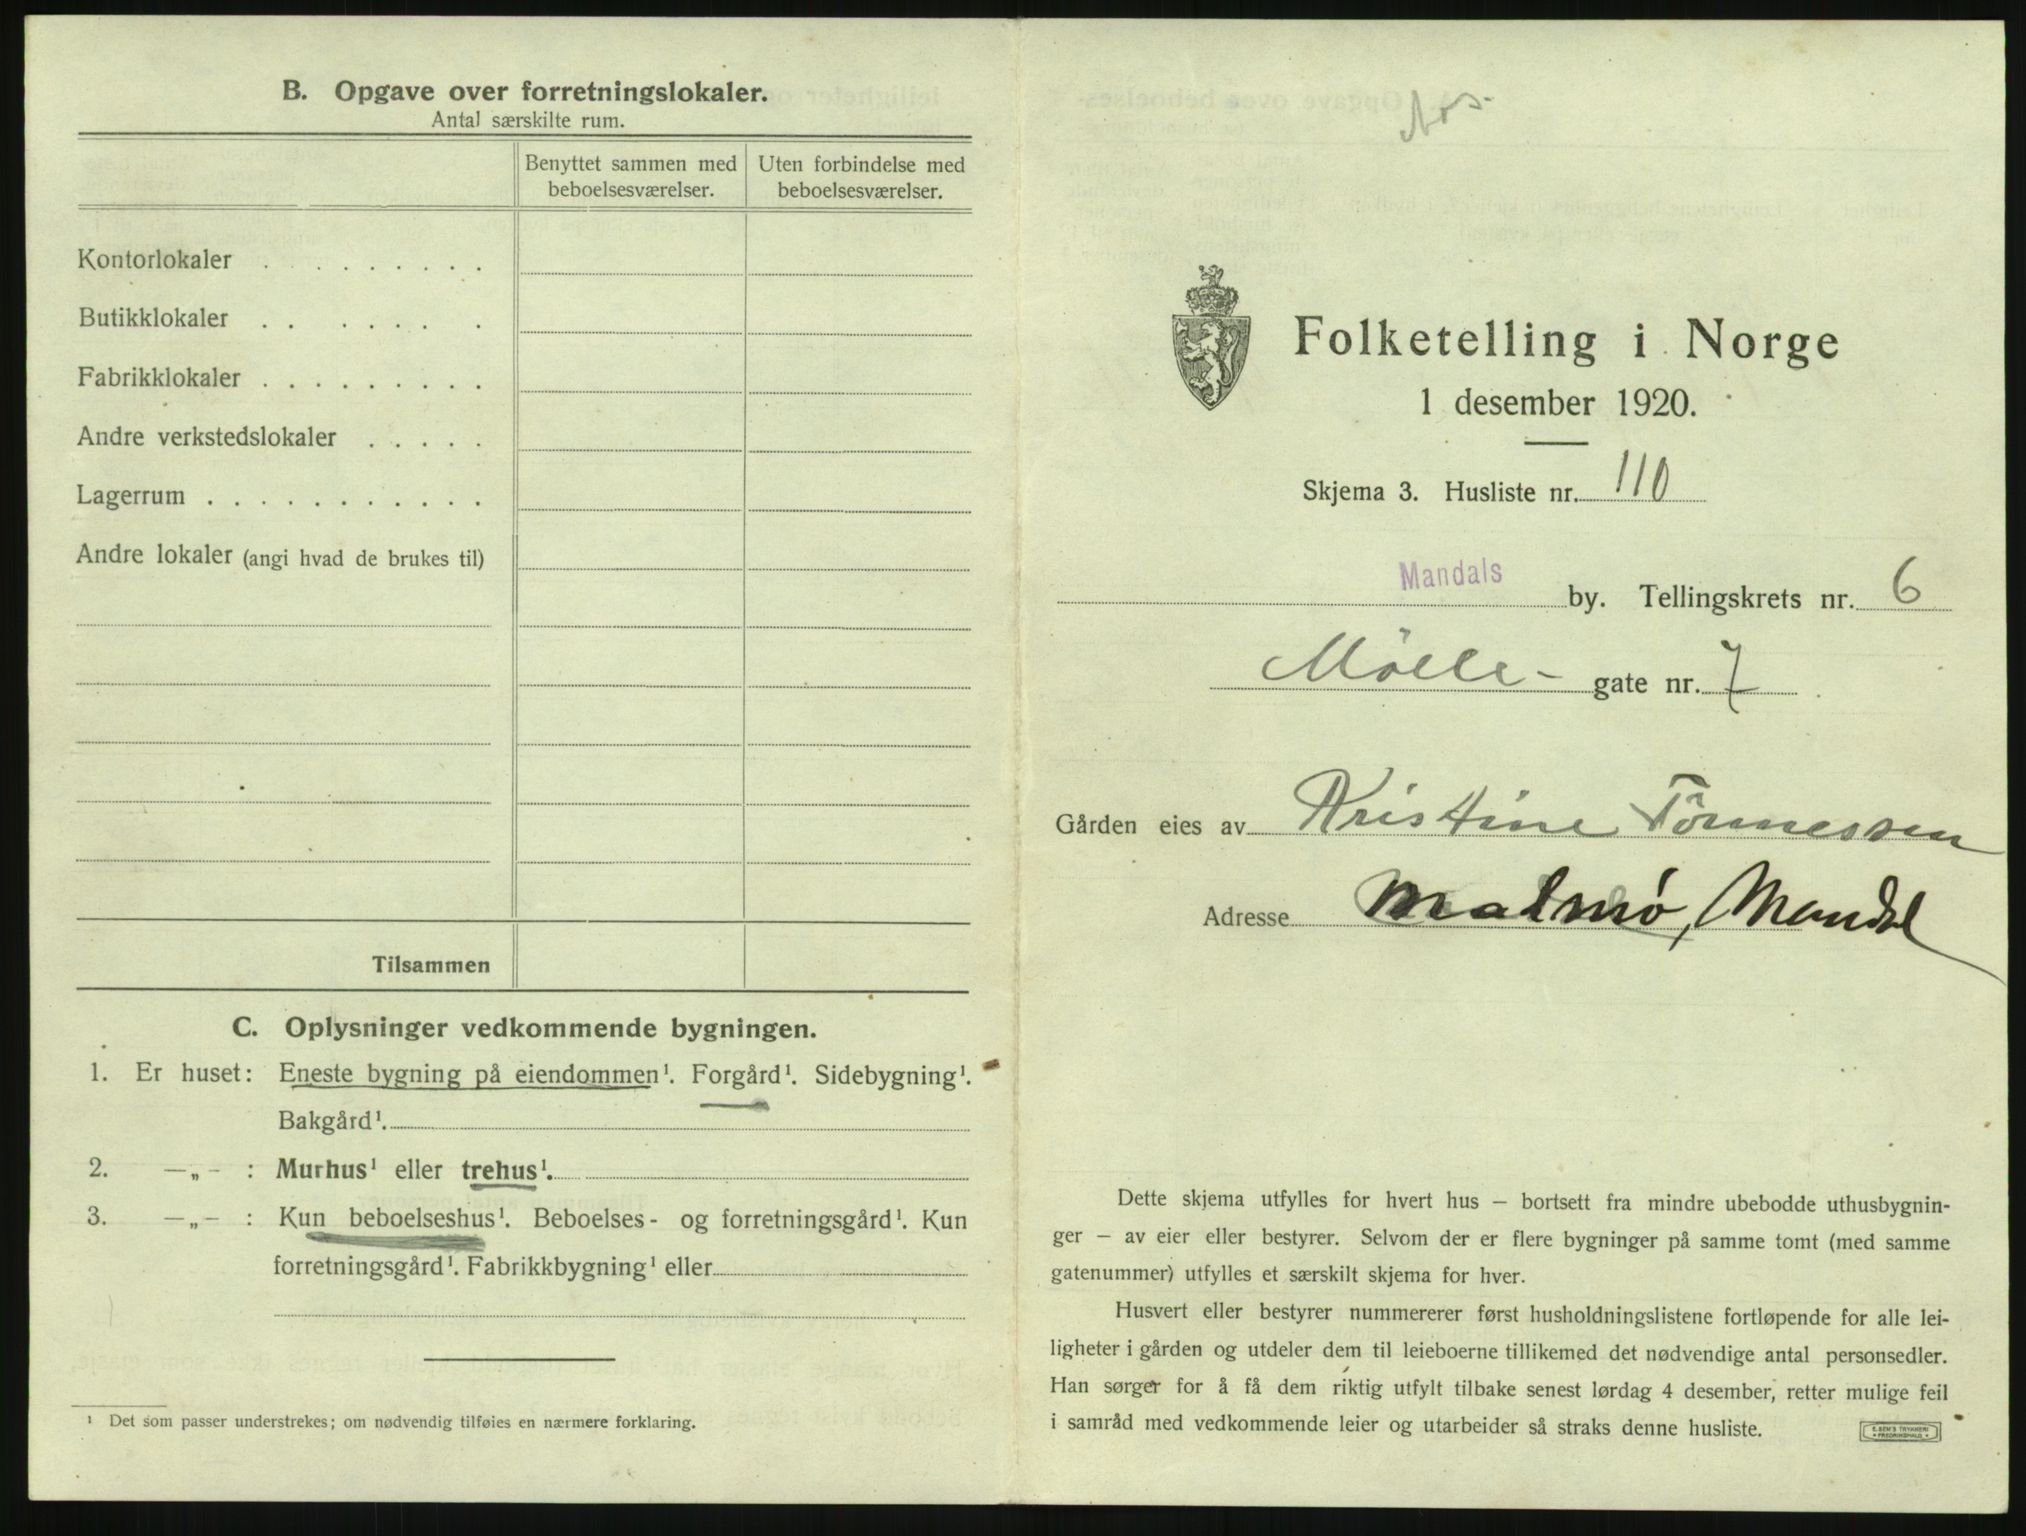 B. Opgave over forretningslokaler.
Antal særskilte rum.
Benyttet sammen med beboelsesværelser.
Uten forbindelse med beboelsesværelser.
Kontorlokaler . . . . . . . . .
Butikklokaler . . . . . . . .
Fabrikklokaler . . . . . . . . .
Andre verkstedslokaler . . . . .
Lagerrum . . . . . . . . . . .
Andre lokaler (angi hvad de brukes til)
Tilsammen
C. Oplysninger vedkommende bygningen.
1. Er huset: Eneste bygning på eiendommen¹. Forgård¹. Sidebygning¹.
Bakgård¹.
2. —„— : Murhus¹ eller trehus¹.
3. —„— : Kun beboelseshus¹. Beboelses- og forretningsgård¹. Kun
forretningsgård¹. Fabrikkbygning¹ eller
¹ Det som passer understrekes; om nødvendig tilføies en nærmere forklaring.
Folketelling i Norge
1 desember 1920.
Skjema 3. Husliste nr. 110
Mandals by. Tellingskrets nr. 6
Mölle- gate nr. 7
Gården eies av Kristine Tönnessen
Adresse Malmø, Mandal
Dette skjema utfylles for hvert hus – bortsett fra mindre ubebodde uthusbygnin-
ger – av eier eller bestyrer. Selvom der er flere bygninger på samme tomt (med samme
gatenummer) utfylles et særskilt skjema for hver.
Husvert eller bestyrer nummererer først husholdningslistene fortløpende for alle lei-
ligheter i gården og utdeler dem til leieboerne tillikemed det nødvendige antal personsedler.
Han sørger for å få dem riktig utfylt tilbake senest lørdag 4 desember, retter mulige feil
i samråd med vedkommende leier og utarbeider så straks denne husliste.